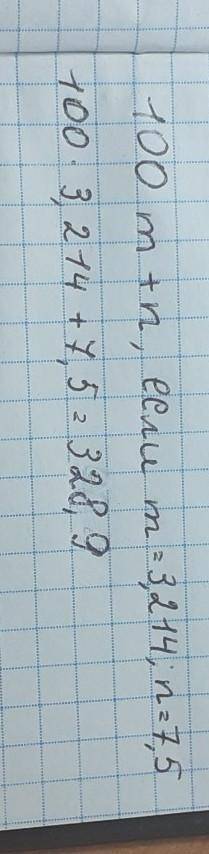 100 m + n, если m = 3,214; n = 7,5
100 · 3,214 + 7,5 = 328,9